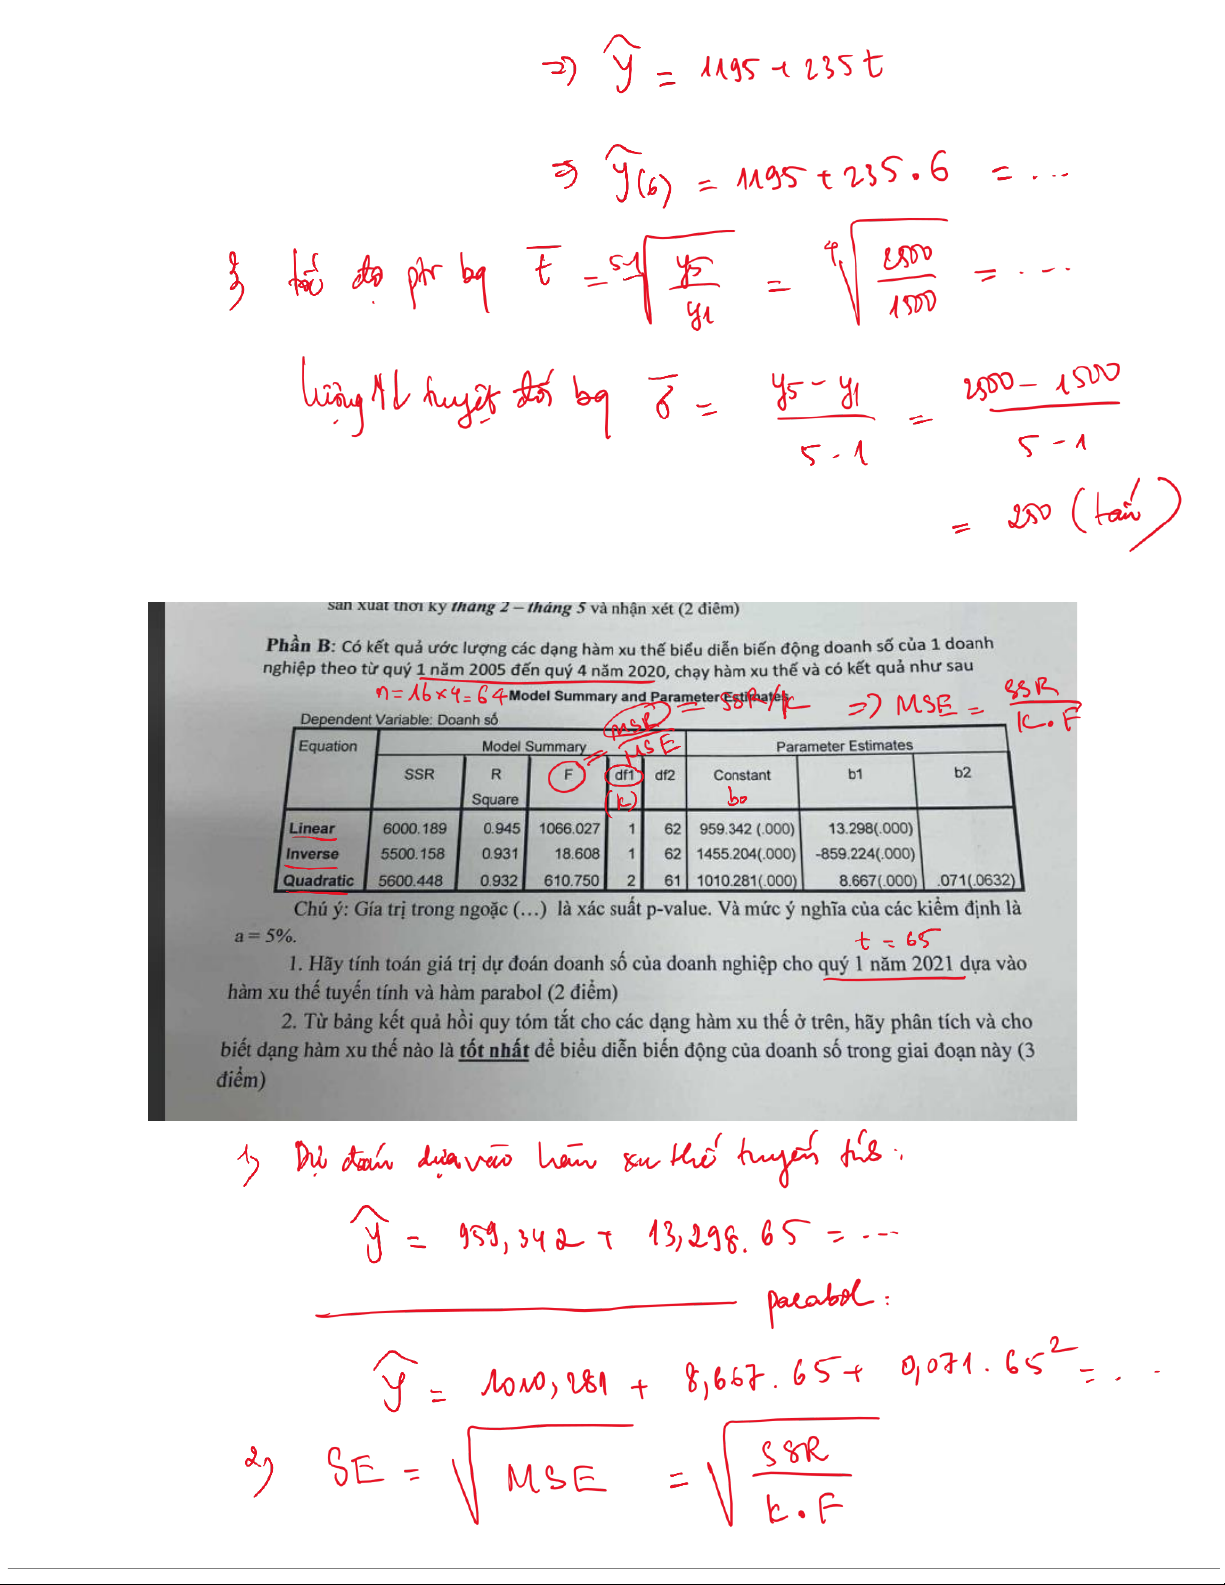 => ŷ = 1195 + 235t
=> ŷ(6) = 1195 + 235.6 = ...
3) tốc độ ptr bq t̅ = ⁵⁻¹√(y5/y1) = ⁴√(2500/1500) = ...
lượng tuyệt đối bq δ̅ = (y5 - y1)/(5 - 1) = (2500 - 1500)/(5 - 1)
= 250 (tấn)
sản xuất thời kỳ tháng 2 – tháng 5 và nhận xét (2 điểm)
Phần B: Có kết quả ước lượng các dạng hàm xu thế biểu diễn biến động doanh số của 1 doanh
nghiệp theo từ quý 1 năm 2005 đến quý 4 năm 2020, chạy hàm xu thế và có kết quả như sau
n = 16 x 4 = 64 Model Summary and Parameter Estimates = SSR/k => MSE = SSR/(k.F)
Dependent Variable: Doanh số
= MSR/MSE
Equation Model Summary Parameter Estimates
SSR R Square F df1 df2 Constant b1 b2
(k) b0
Linear 6000.189 0.945 1066.027 1 62 959.342 (.000) 13.298(.000)
Inverse 5500.158 0.931 18.608 1 62 1455.204(.000) -859.224(.000)
Quadratic 5600.448 0.932 610.750 2 61 1010.281(.000) 8.667(.000) .071(.0632)
Chú ý: Gía trị trong ngoặc (…) là xác suất p-value. Và mức ý nghĩa của các kiểm định là
a = 5%.
t = 65
1. Hãy tính toán giá trị dự đoán doanh số của doanh nghiệp cho quý 1 năm 2021 dựa vào
hàm xu thế tuyến tính và hàm parabol (2 điểm)
2. Từ bảng kết quả hồi quy tóm tắt cho các dạng hàm xu thế ở trên, hãy phân tích và cho
biết dạng hàm xu thế nào là tốt nhất để biểu diễn biến động của doanh số trong giai đoạn này (3
điểm)
1) Dự đoán dựa vào hàm xu thế tuyến tính:
ŷ = 959,342 + 13,298.65 = ...
parabol:
ŷ = 1010,281 + 8,667.65 + 0,071.65² = ...
2) SE = √MSE = √(SSR/(k.F))